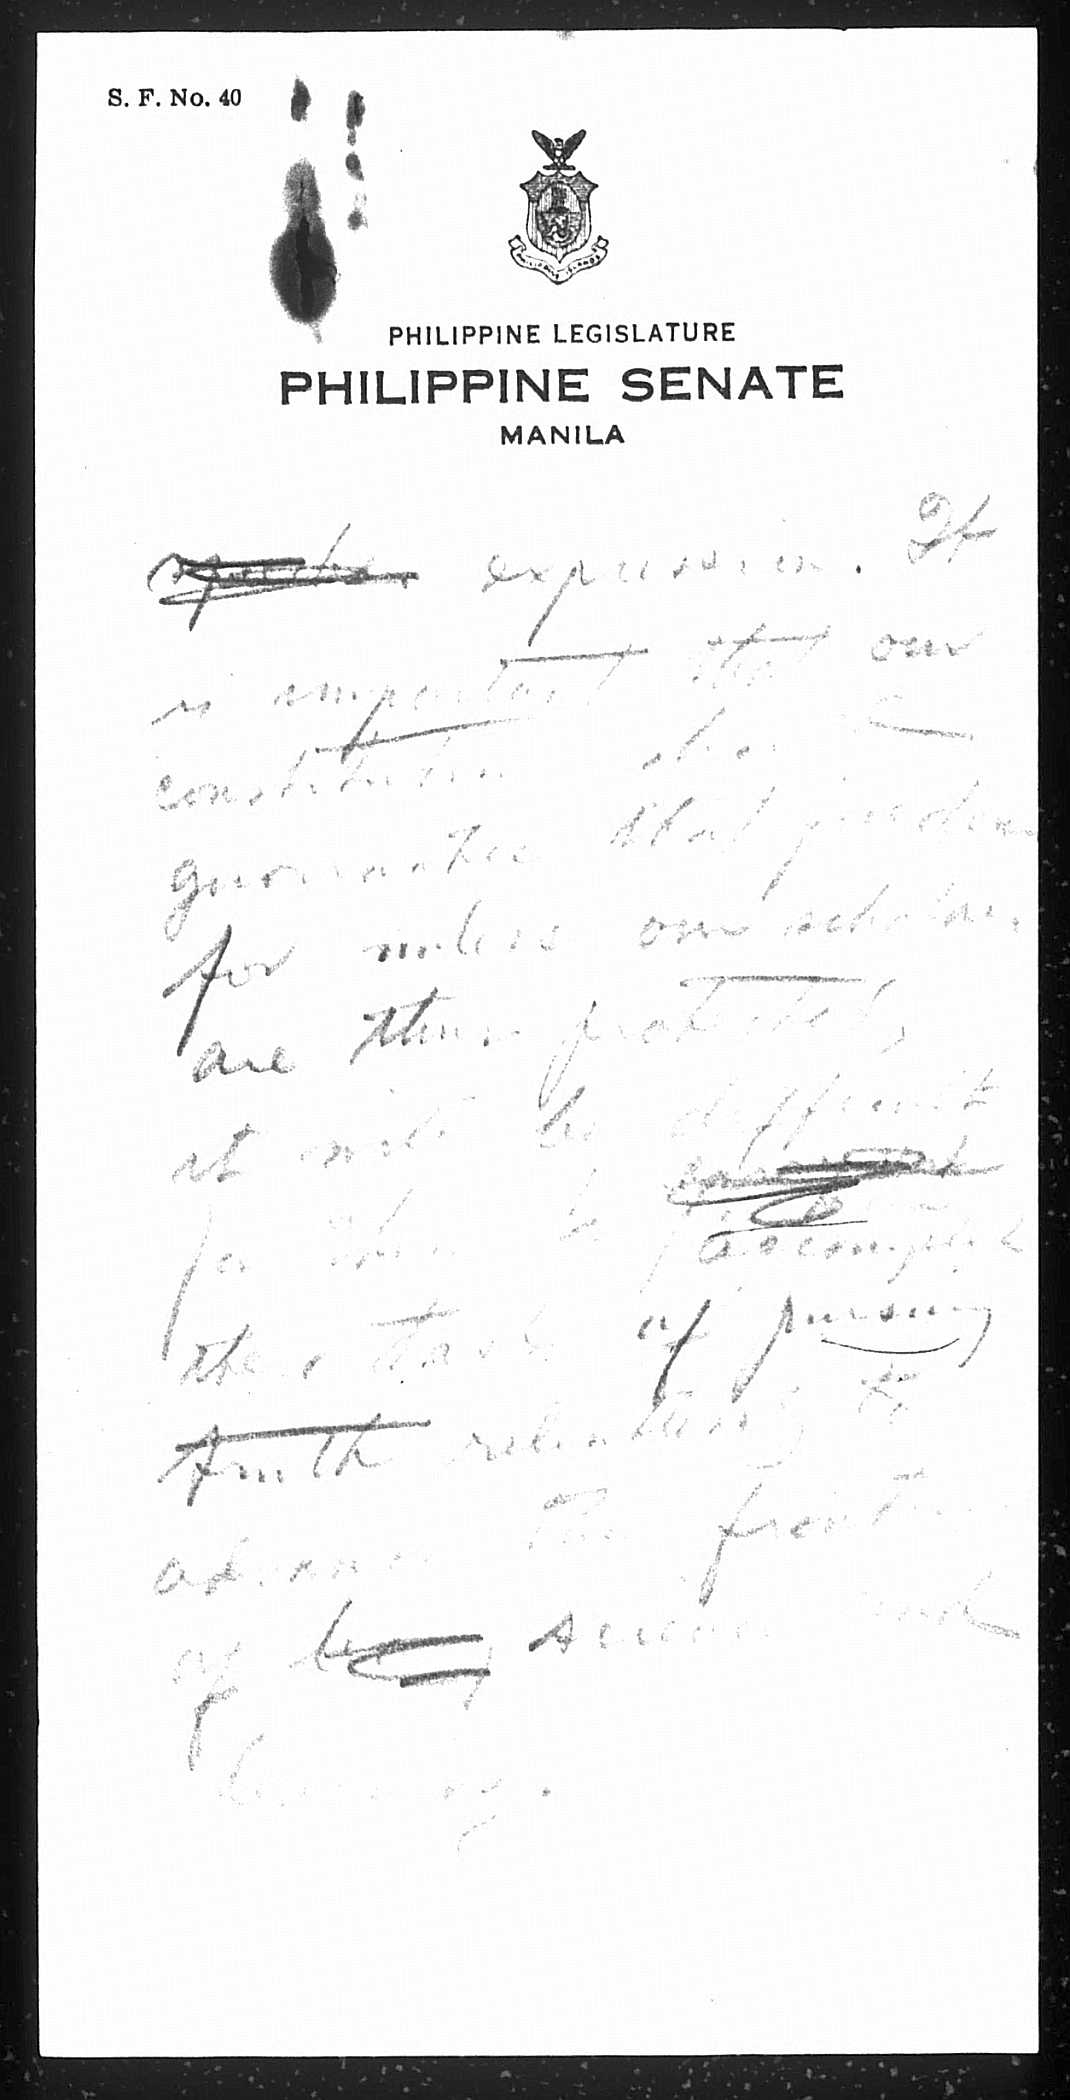 S. F. No. 40
PHILIPPINE ISLANDS
PHILIPPINE LEGISLATURE
PHILIPPINE SENATE
MANILA
expression. It
is important that our
constitution
guarantee that freedom
for unless our scholars
are thus protected,
it will be difficult
for them to accomplish
their task of pursuing
truth relentlessly to
advance the frontier
of science and
learning.